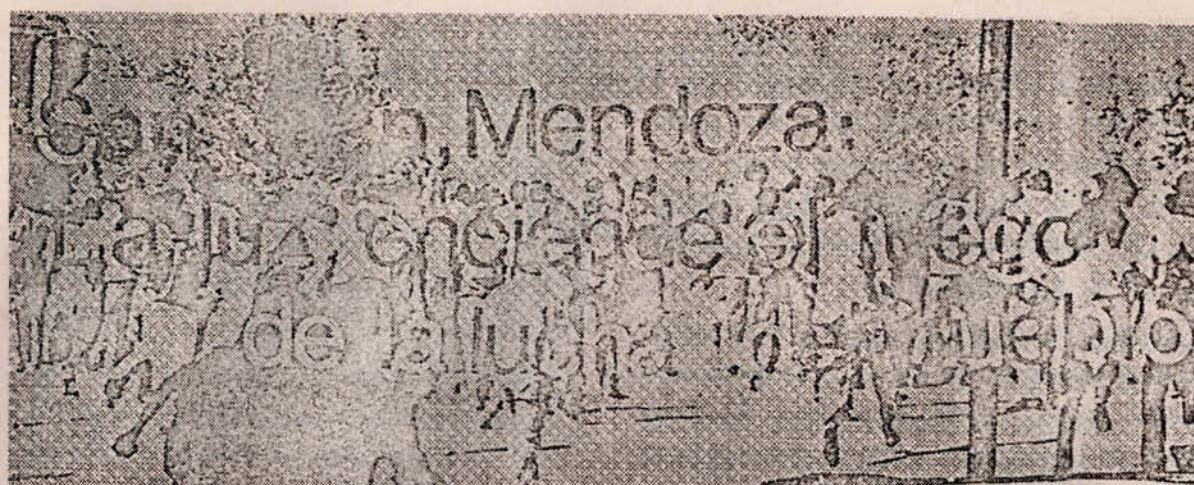 Mendoza:
La luz enciende el fuego
de la lucha del pueblo